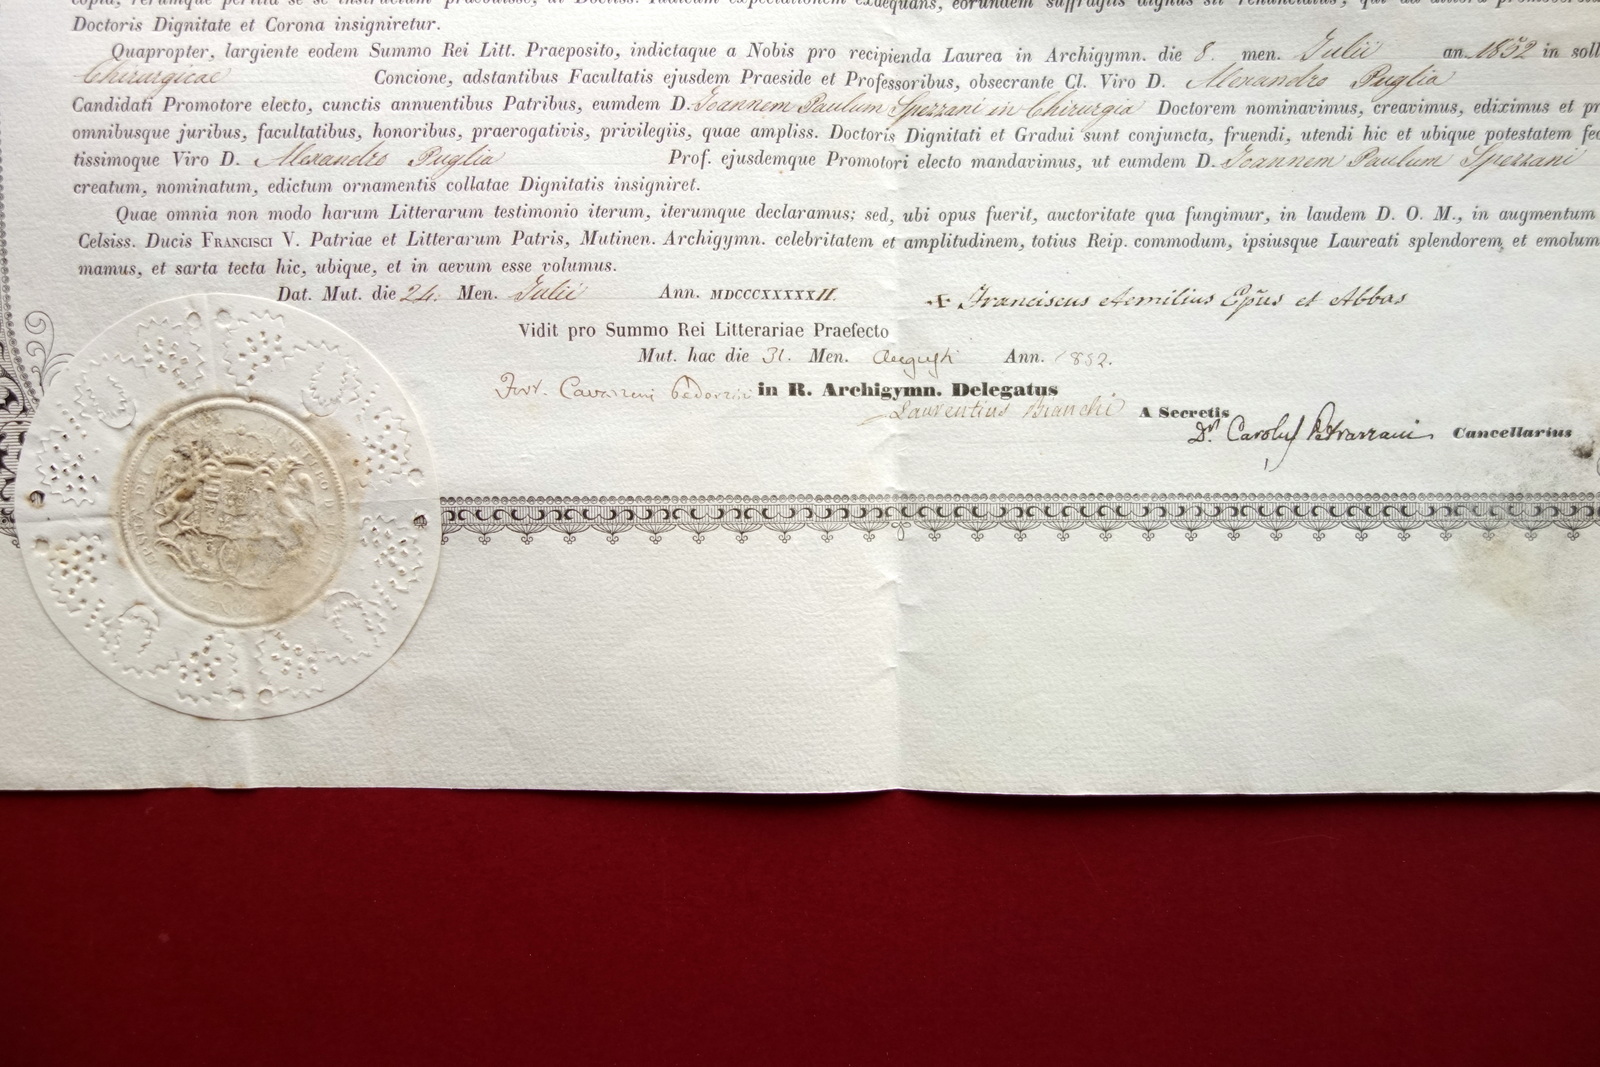 copia, rerumque peritia se se instructum praebuisse, ut Doctiss. Iudicum expectationem exaequans, eorundem suffragiis dignus sit renunciatus, qui ad
Doctoris Dignitate et Corona insigniretur.
Quapropter, largiente eodem Summo Rei Litt. Praeposito, indictaque a Nobis pro recipienda Laurea in Archigymn. die 8. men. Iulii an. 1852 in soll
Chirurgicae Concione, adstantibus Facultatis ejusdem Praeside et Professoribus, obsecrante Cl. Viro D. Alexandro Puglia
Candidati Promotore electo, cunctis annuentibus Patribus, eumdem D. Ioannem Paulum Spezzani in Chirurgia Doctorem nominavimus, creavimus, ediximus et pr
omnibusque juribus, facultatibus, honoribus, praerogativis, privilegiis, quae ampliss. Doctoris Dignitati et Gradui sunt conjuncta, fruendi, utendi hic et ubique potestatem fec
tissimoque Viro D. Alexandro Puglia Prof. ejusdemque Promotori electo mandavimus, ut eumdem D. Ioannem Paulum Spezzani
creatum, nominatum, edictum ornamentis collatae Dignitatis insigniret.
Quae omnia non modo harum Litterarum testimonio iterum, iterumque declaramus; sed, ubi opus fuerit, auctoritate qua fungimur, in laudem D. O. M., in augmentum
Celsiss. Ducis FRANCISCI V. Patriae et Litterarum Patris, Mutinen. Archigymn. celebritatem et amplitudinem, totius Reip. commodum, ipsiusque Laureati splendorem, et emolum
mamus, et sarta tecta hic, ubique, et in aevum esse volumus.
Dat. Mut. die 24. Men. Iulii Ann. MDCCCXXXXXII. + Franciscus Aemilius Epūs et Abbas
Vidit pro Summo Rei Litterariae Praefecto
Mut. hac die 31. Men. Augusti Ann. 1852.
in R. Archigymn. Delegatus
Laurentius Bianchi A Secretis
Dr. Carolus Cancellarius